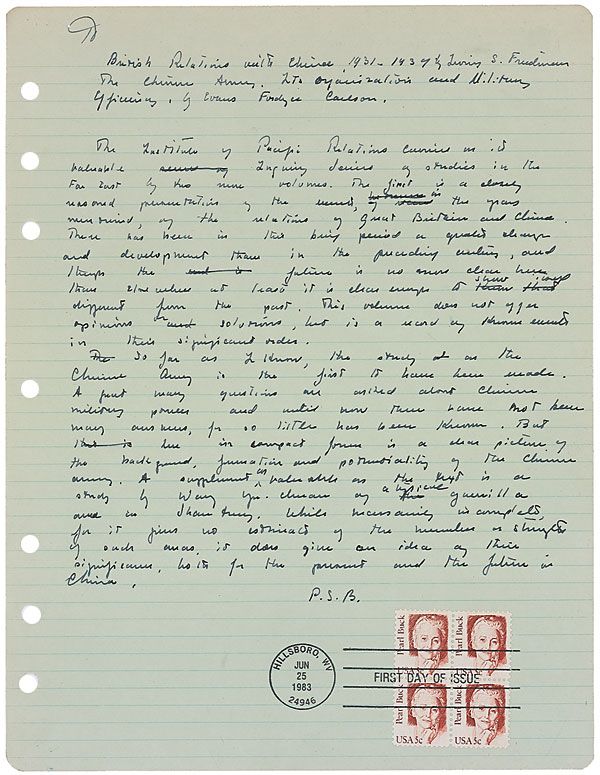 British Relations with China 1931-1939 by Irving S. Friedman
The Chinese Army. Its Organization and Military
Efficiency. by Evans Fordyce Carlson.
The Institute of Pacific Relations carries on its
valuable Inquiry Series of studies in the
Far East by two new volumes. The first is a closely
reasoned presentation of the events, in the years
mentioned, of the relations of Great Britain and China.
There has been in this brief period a greater change
and development than in the preceding century, and
though the future is no more clear here
than elsewhere at least it is clear enough to show
different from the past. This volume does not offer
opinions and solutions, but is a record of known events
in their significant order.
So far as I know, the study of the
Chinese Army is the first to have been made.
A great many questions are asked about Chinese
military power and until now there have not been
many answers, for so little has been known. But
here in compact form is a clear picture of
the background, formation and potentiality of the Chinese
army. A supplement as valuable as the text is a
study by Wang Yu-chuan of a typical guerilla
area in Shantung. While necessarily incomplete,
for it gives no estimate of the number or strength
of such areas, it does give an idea of their
significance, both for the present and the future in
China.
P.S.B.
HILLSBORO, WV
JUN
25
1983
24946
FIRST DAY OF ISSUE
Pearl Buck
Pearl Buck
USA 5c
USA 5c
Pearl Buck
Pearl Buck
USA 5c
USA 5c